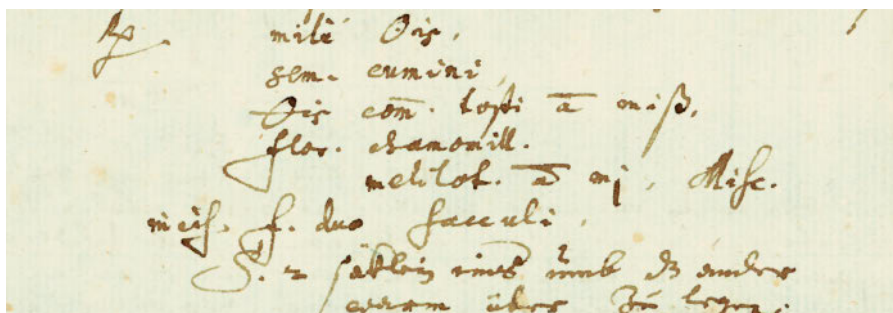 ℞ milii ℥is,
sem. cumini,
℥is com̄. tosti ā miß.
flor. chamomill.
melilot. ā mj, Misc.
incis. f. duo sacculi,
S. 2 säklein eines umb dz ander
warm über zu legen.